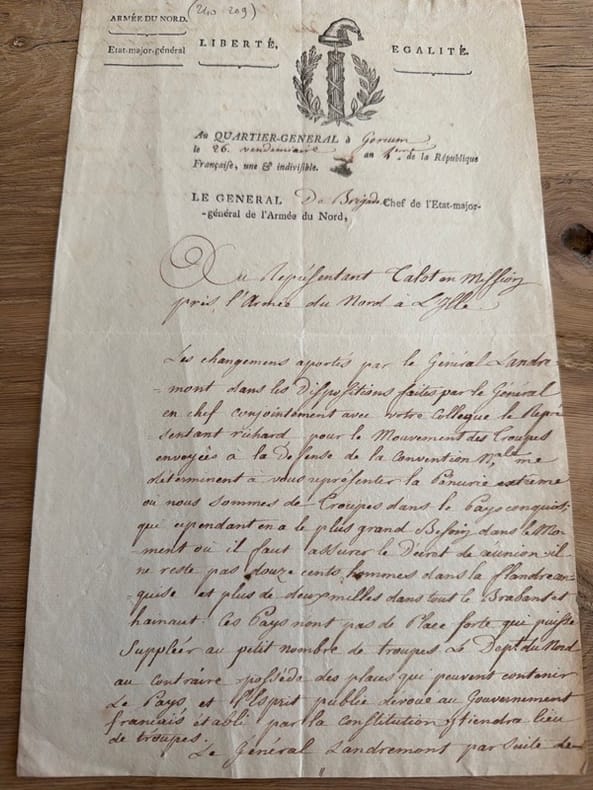 (210 209)
ARMÉE DU NORD.
Etat-major-général
LIBERTÉ,
EGALITÉ.
Au QUARTIER-GENERAL à Gorcum
le 26. vendemiaire an 4.eme de la République
Française, une & indivisible.
LE GENERAL De Brigade Chef de l'Etat-major-
-général de l'Armée du Nord,
Au Représentant Talot en Mission
près l'Armée du Nord à Lylle
Les changemens apportés par le Général Landre-
-mont dans les Dispositions faites par le Général
en chef conjointement avec votre Collegue le Repré
-sentant richard pour le Mouvement des Troupes
envoyées à la Defense de la Convention N.ale me
déterminent à vous représenter la Panurie extrême
où nous sommes de Troupes dans le Pays conquis;
qui cependant en a le plus grand Besoin dans le Mo-
-ment où il faut assurer le Décret de réunion. il
ne reste pas douze cents hommes dans la flandre an-
-quise et plus de deux milles dans tout le Brabant et
hainaut. Ces Pays n'ont pas de Place forte qui puisse
Suppléer au petit nombre de troupes. Le Dept. du Nord
au contraire possède des places qui peuvent contenir
Le Pays, et l'Esprit public dévoué au Gouvernement
français établi par la constitution y tiendra lieu
de troupes.
Le Général Landremont par suite de